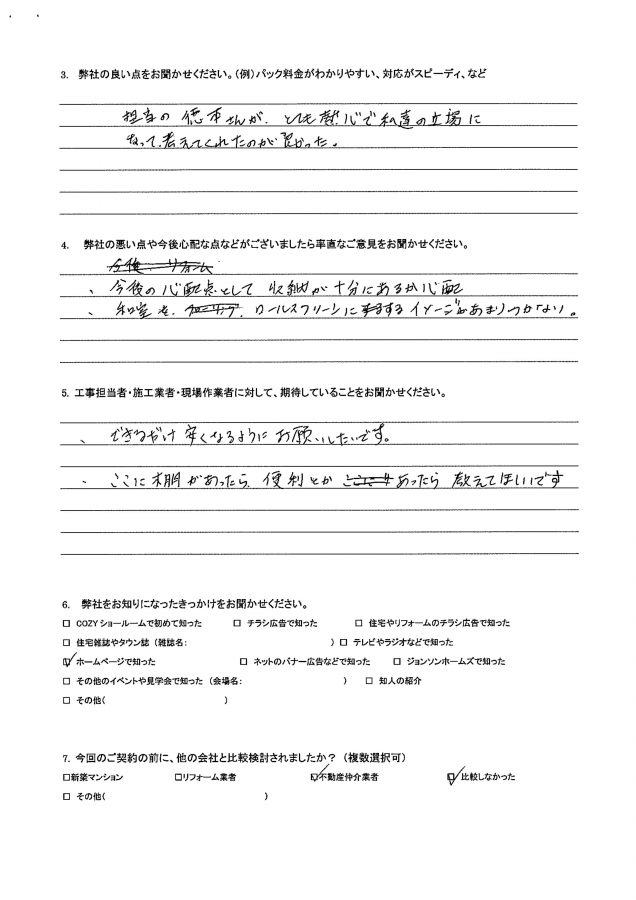 3. 弊社の良い点をお聞かせください。(例)パック料金がわかりやすい、対応がスピーディ、など
担当の徳本さんが、とても熱心で私達の立場に
なって、考えてくれたのが良かった。
4. 弊社の悪い点や今後心配な点などがございましたら率直なご意見をお聞かせください。
今後 リフォーム
、今後の心配点として 収納が十分にあるか心配
、和室を、 ロールスクリーンにするイメージがあまりつかない。
5. 工事担当者・施工業者・現場作業者に対して、期待していることをお聞かせください。
、できるだけ安くなるようにお願いしたいです。
、ここに棚があったら、便利とか あったら教えてほしいです
6. 弊社をお知りになったきっかけをお聞かせください。
□ COZYショールームで初めて知った □ チラシ広告で知った □ 住宅やリフォームのチラシ広告で知った
□ 住宅雑誌やタウン誌 (雑誌名: ) □ テレビやラジオなどで知った
☑ ホームページで知った □ ネットのバナー広告などで知った □ ジョンソンホームズで知った
□ その他のイベントや見学会で知った (会場名: ) □ 知人の紹介
□ その他( )
7. 今回のご契約の前に、他の会社と比較検討されましたか? (複数選択可)
□新築マンション □リフォーム業者 ☑不動産仲介業者 ☑比較しなかった
□ その他( )